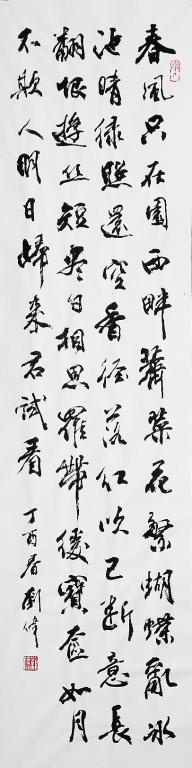 春風只在園西畔薺菜花繁蝴蝶亂冰
池晴綠照還空香徑落紅吹已斷意長
翻恨遊絲短盡日相思羅帶緩寶奩如月
不欺人明日歸來君試看
丁酉春劉偉